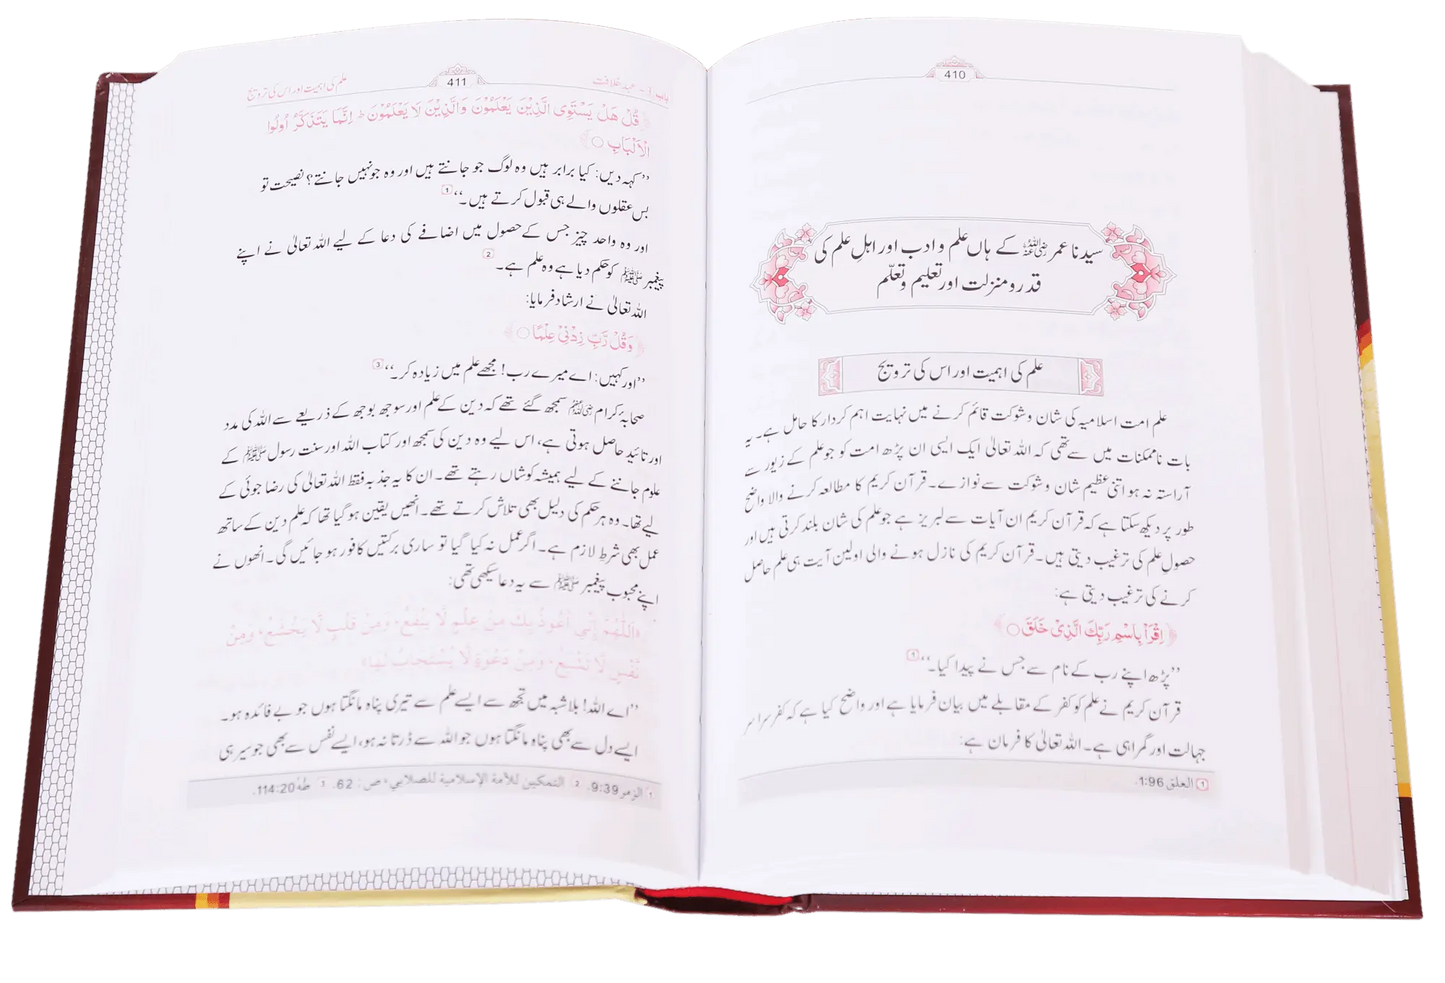 410
سیدنا عمر رضی اللہ عنہ کے ہاں علم و ادب اور اہلِ علم کی
قدر و منزلت اور تعلیم و تعلّم
علم کی اہمیت اور اس کی ترویج
علم امت اسلامیہ کی شان و شوکت قائم کرنے میں نہایت اہم کردار کا حامل ہے۔ یہ
بات ناممکنات میں سے تھی کہ اللہ تعالیٰ ایک ایسی ان پڑھ امت کو جو علم کے زیور سے
آراستہ نہ ہو اتنی عظیم شان و شوکت سے نوازے۔ قرآن کریم کا مطالعہ کرنے والا واضح
طور پر دیکھ سکتا ہے کہ قرآن کریم ان آیات سے لبریز ہے جو علم کی شان بلند کرتی ہیں اور
حصول علم کی ترغیب دیتی ہیں۔ قرآن کریم کی نازل ہونے والی اولین آیت ہی علم حاصل
کرنے کی ترغیب دیتی ہے:
﴿اِقْرَاْ بِاسْمِ رَبِّكَ الَّذِىْ خَلَقَ ○﴾
’’پڑھ اپنے رب کے نام سے جس نے پیدا کیا۔‘‘ ①
قرآن کریم نے علم کو کفر کے مقابلے میں بیان فرمایا ہے اور واضح کیا ہے کہ کفر سراسر
جہالت اور گمراہی ہے۔ اللہ تعالیٰ کا فرمان ہے:
① العلق 1:96.
باب:3 - عہد خلافت 411 علم کی اہمیت اور اس کی ترویج
﴿قُلْ هَلْ يَسْتَوِى الَّذِيْنَ يَعْلَمُوْنَ وَالَّذِيْنَ لَا يَعْلَمُوْنَ ؕ اِنَّمَا يَتَذَكَّرُ اُولُوا
الْاَلْبَابِ ○﴾
’’کہہ دیں: کیا برابر ہیں وہ لوگ جو جانتے ہیں اور وہ جو نہیں جانتے؟ نصیحت تو
بس عقلوں والے ہی قبول کرتے ہیں۔‘‘ 1
اور وہ واحد چیز جس کے حصول میں اضافے کی دعا کے لیے اللہ تعالیٰ نے اپنے
پیغمبر ﷺ کو حکم دیا ہے وہ علم ہے۔ 2
اللہ تعالیٰ نے ارشاد فرمایا:
﴿وَقُلْ رَّبِّ زِدْنِىْ عِلْمًا ○﴾
’’اور کہیں: اے میرے رب! مجھے علم میں زیادہ کر۔‘‘ 3
صحابۂ کرام رضی اللہ عنہم سمجھ گئے تھے کہ دین کے علم اور سوجھ بوجھ کے ذریعے سے اللہ کی مدد
اور تائید حاصل ہوتی ہے، اس لیے وہ دین کی سمجھ اور کتاب اللہ اور سنت رسول ﷺ کے
علوم جاننے کے لیے ہمیشہ کوشاں رہتے تھے۔ ان کا یہ جذبہ فقط اللہ تعالیٰ کی رضا جوئی کے
لیے تھا۔ وہ ہر حکم کی دلیل بھی تلاش کرتے تھے۔ انھیں یقین ہو گیا تھا کہ علم دین کے ساتھ
عمل بھی شرطِ لازم ہے۔ اگر عمل نہ کیا گیا تو ساری برکتیں کافور ہو جائیں گی۔ انھوں نے
اپنے محبوب پیغمبر ﷺ سے یہ دعا سیکھی تھی:
«اَللّٰهُمَّ اِنِّي أَعُوذُ بِكَ مِنْ عِلْمٍ لَّا يَنْفَعُ، وَمِنْ قَلْبٍ لَّا يَخْشَعُ، وَمِنْ
نَّفْسٍ لَّا تَشْبَعُ، وَمِنْ دَعْوَةٍ لَّا يُسْتَجَابُ لَهَا»
’’اے اللہ! بلاشبہ میں تجھ سے ایسے علم سے تیری پناہ مانگتا ہوں جو بے فائدہ ہو۔
ایسے دل سے بھی پناہ مانگتا ہوں جو اللہ سے ڈرتا نہ ہو، ایسے نفس سے بھی جو سیر ہی
1 الزمر 9:39. 2 التمكين للأمة الإسلامية للصلابي، ص: 62. 3 طٰهٰ 114:20.